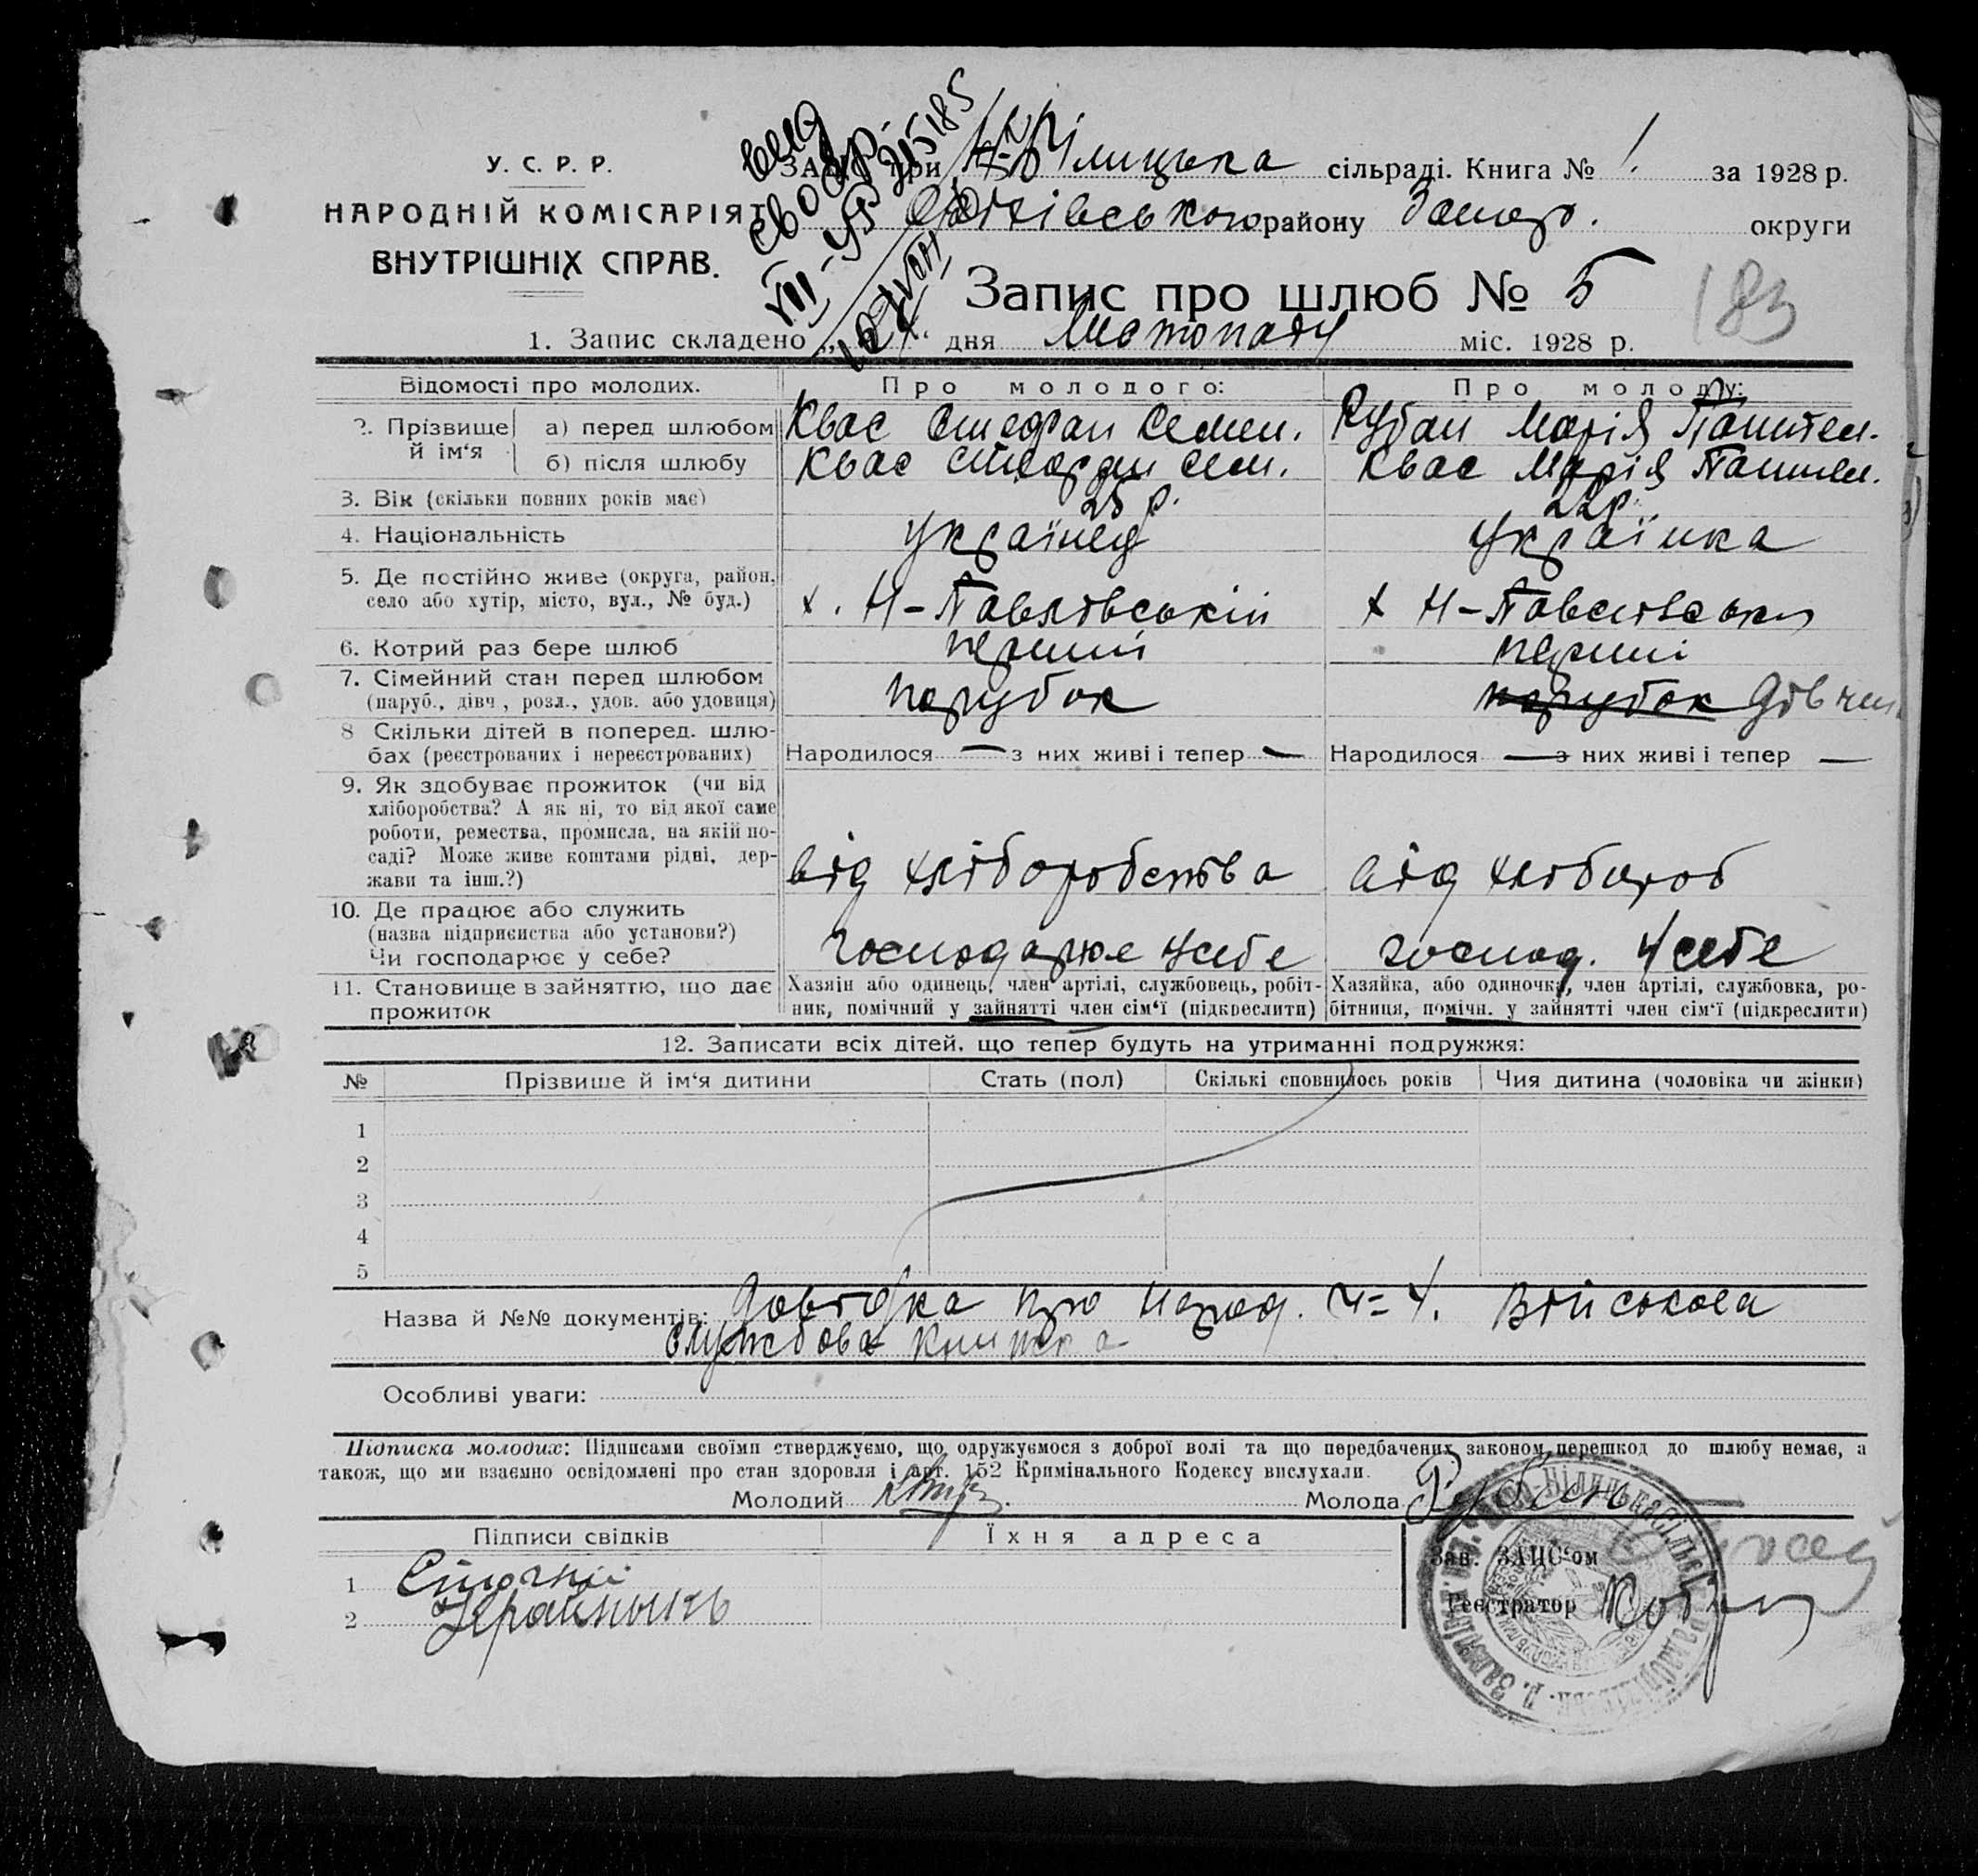 У. С. Р. Р.
НАРОДНІЙ КОМІСАРІЯТ
ВНУТРІШНІХ СПРАВ.
ЗАГС при сільраді. Книга № 1 за 1928 р.
району округи
Запис про шлюб № 5
183
1. Запис складено „ “ дня Листопаду міс. 1928 р.
Відомості про молодих. Про молодого: Про молоду:
2. Прізвище й ім‘я
а) перед шлюбом Квас Стефан Семен. Рубан Марія
б) після шлюбу Квас Стефан Сем. Квас Марія
3. Вік (скільки повних років має) 25 р. 22 р.
4. Національність українец українка
5. Де постійно живе (округа, район,
село або хутір, місто, вул., № буд.) х. Н-Павлівській х Н-Павлівський
6. Котрий раз бере шлюб перший перший
7. Сімейний стан перед шлюбом
(паруб., дівч., розл., удов. або удовиця) парубок парубок дівчин
8 Скільки дітей в поперед. шлю-
бах (реєстрованих і нереєстрованих) Народилося — з них живі і тепер — Народилося — з них живі і тепер —
9. Як здобуває прожиток (чи від
хліборобства? А як ні, то від якої саме
роботи, ремества, промисла, на якій по-
саді? Може живе коштами рідні, дер-
жави та інш.?) від хліборобства від хлібороб
10. Де працює або служить
(назва підприємства або установи?)
Чи господарює у себе? господарює у себе господ. у себе
11. Становище в зайняттю, що дає
прожиток
Хазяїн або одинець, член артілі, службовець, робіт-
ник, помічний у зайнятті член сім‘ї (підкреслити)
Хазяйка, або одиночка, член артілі, службовка, ро-
бітниця, помічн. у зайнятті член сім‘ї (підкреслити)
12. Записати всіх дітей, що тепер будуть на утриманні подружжя:
№ Прізвище й ім‘я дитини Стать (пол) Скількі сповнилось років Чия дитина (чоловіка чи жінки)
1
2
3
4
5
Назва й №№ документів: Довідка про народ. ч= 4. Військова
службова книжка
Особливі уваги:
Підписка молодих: Підписами своїми стверджуємо, що одружуємося з доброї волі та що передбачених законом перешкод до шлюбу немає, а
також, що ми взаємно освідомлені про стан здоровля і арт. 152 Кримінального Кодексу вислухали.
Молодий Молода Рубан
Підписи свідків Їхня адреса
1
2
Зав. ЗАГС‘ом
Реєстратор